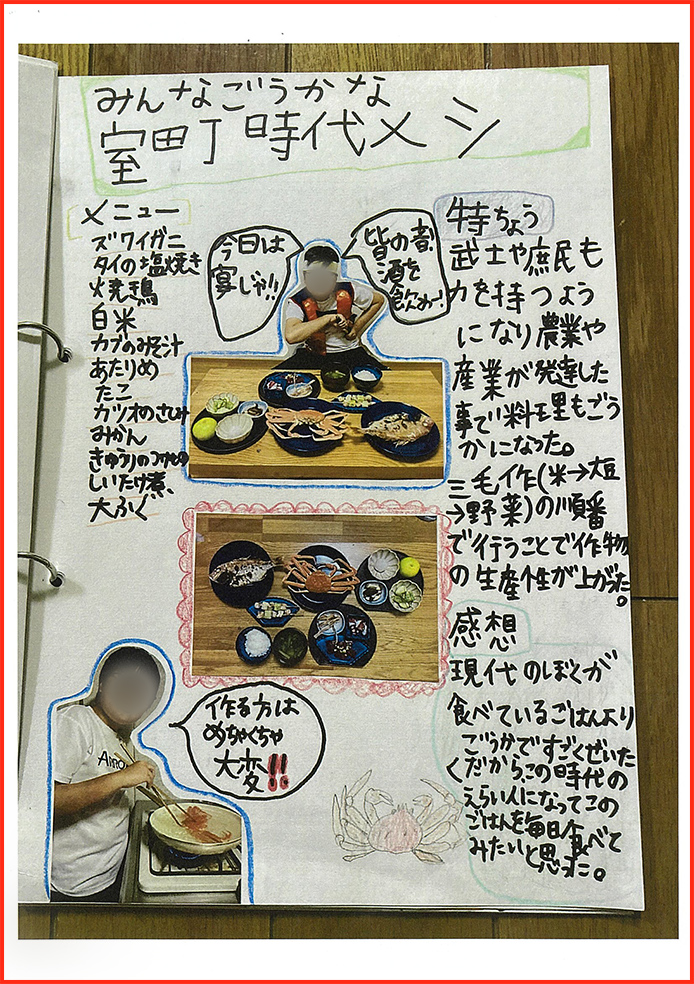 みんなごうかな
室町時代メシ
メニュー
ズワイガニ
タイの塩焼き
焼き鴨
白米
カブのみそ汁
あたりめ
たこ
カツオのさしみ
みかん
きゅうりのつけもの
しいたけ煮
大ふく
今日は
宴じゃ!!
皆の者
酒を
飲めー!
特ちょう
武士や庶民も
力を持つよう
になり農業や
産業が発達した
事で料理もごう
かになった。
三毛作(米→大豆
→野菜)の順番
で行うことで作物
の生産性が上がった。
感想
現代のぼくが
食べているごはんより
ごうかですごくぜいた
くだからこの時代の
えらい人になってこの
ごはんを毎日食べて
みたいと思った。
作る方は
めちゃくちゃ
大変!!